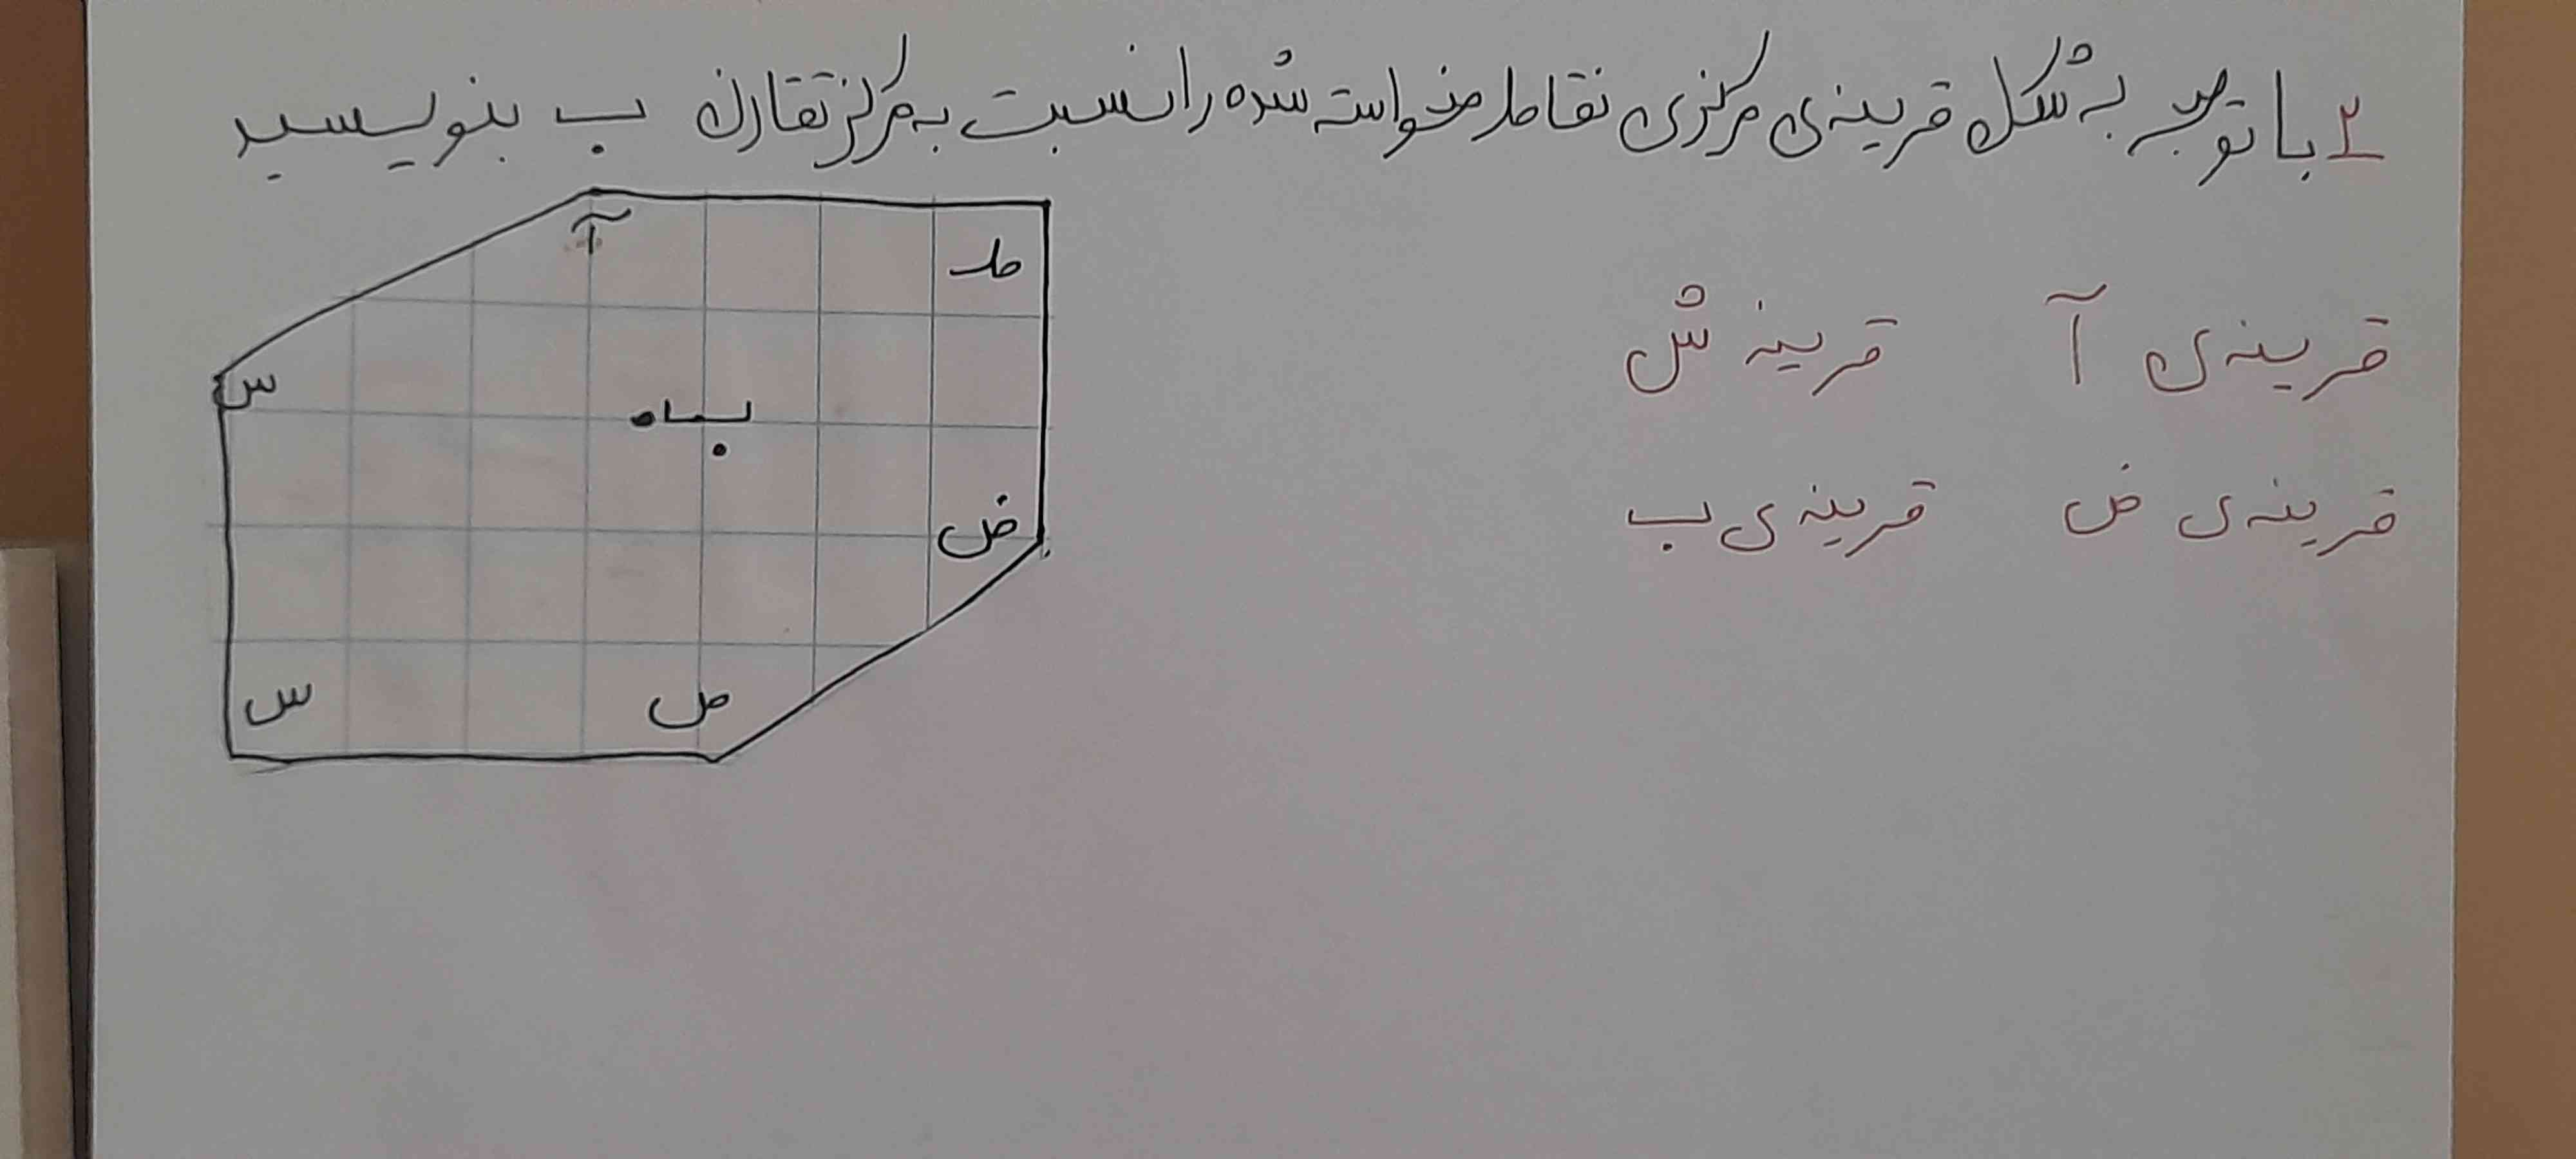 ۲ با توجه به شکل قرینه‌ی مرکزی نقاط خواسته شده را نسبت به مرکز تقارن ب بنویسید
قرینه‌ی آ قرینه ش
قرینه‌ی ض قرینه‌ی ب
آ
ط
س
ب
ض
س
ص